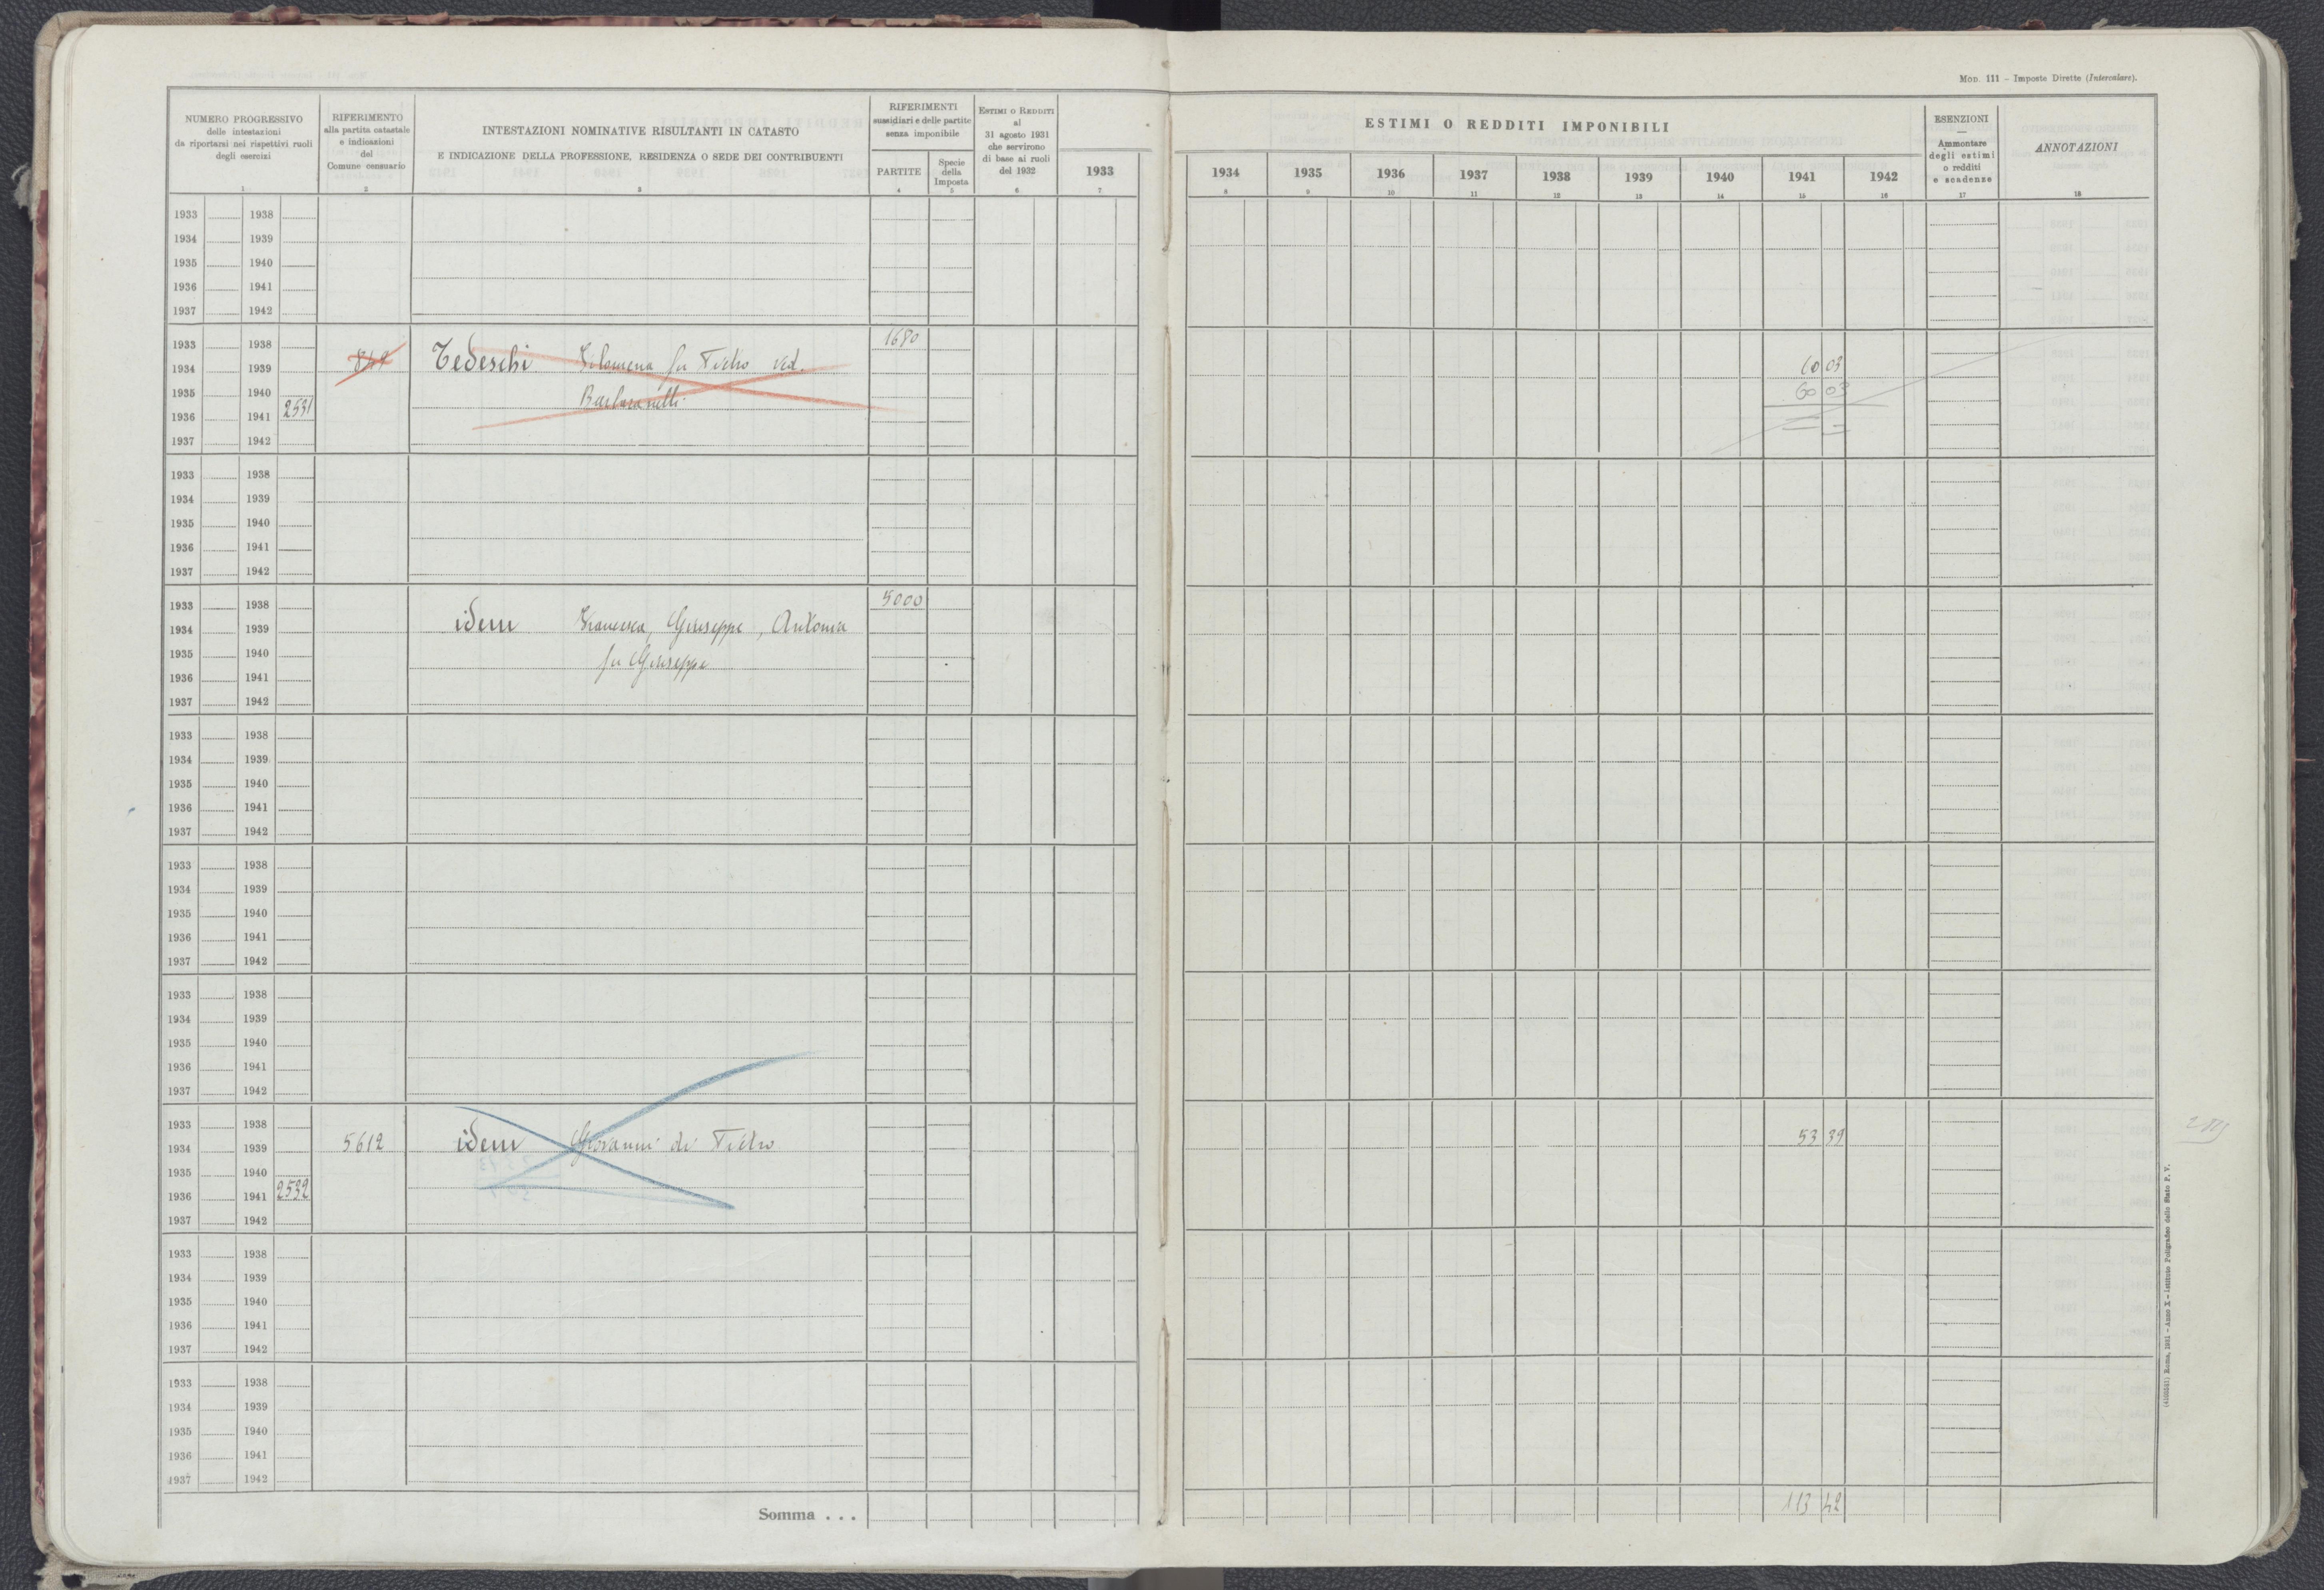 Mod. 111 - Imposte Dirette (Intercalare).
NUMERO PROGRESSIVO
delle intestazioni
da riportarsi nei rispettivi ruoli
degli esercizi
1
RIFERIMENTO
alla partita catastale
e indicazioni
del
Comune censuario
2
INTESTAZIONI NOMINATIVE RISULTANTI IN CATASTO
E INDICAZIONE DELLA PROFESSIONE, RESIDENZA O SEDE DEI CONTRIBUENTI
3
RIFERIMENTI
sussidiari e delle partite
senza imponibile
PARTITE
4
Specie
della
Imposta
5
Estimi o Redditi
al
31 agosto 1931
che servirono
di base ai ruoli
del 1932
6
1933
7
ESTIMI O REDDITI IMPONIBILI
1934 1935 1936 1937 1938 1939 1940 1941 1942
8 9 10 11 12 13 14 15 16
ESENZIONI
—
Ammontare
degli estimi
o redditi
e scadenze
17
ANNOTAZIONI
18
1933 1938
1934 1939
1935 1940
1936 1941
1937 1942
1933 1938 1680
1934 1939 Tedeschi Filomena fu Pietro ved. 60 03
1935 1940 Barbaranelli 60 03
1936 1941 2531
1937 1942
1933 1938
1934 1939
1935 1940
1936 1941
1937 1942
1933 1938 5000
1934 1939 idem Francesca, Giuseppe, Antonia
1935 1940 fu Giuseppe
1936 1941
1937 1942
1933 1938
1934 1939
1935 1940
1936 1941
1937 1942
1933 1938
1934 1939
1935 1940
1936 1941
1937 1942
1933 1938
1934 1939
1935 1940
1936 1941
1937 1942
1933 1938
1934 1939 5612 idem Giovanni di Pietro 53 39
1935 1940
1936 1941 2532
1937 1942
1933 1938
1934 1939
1935 1940
1936 1941
1937 1942
1933 1938
1934 1939
1935 1940
1936 1941
1937 1942
Somma . . . 113 42
(4105541) Roma, 1931 - Anno X - Istituto Poligrafico dello Stato P. V.